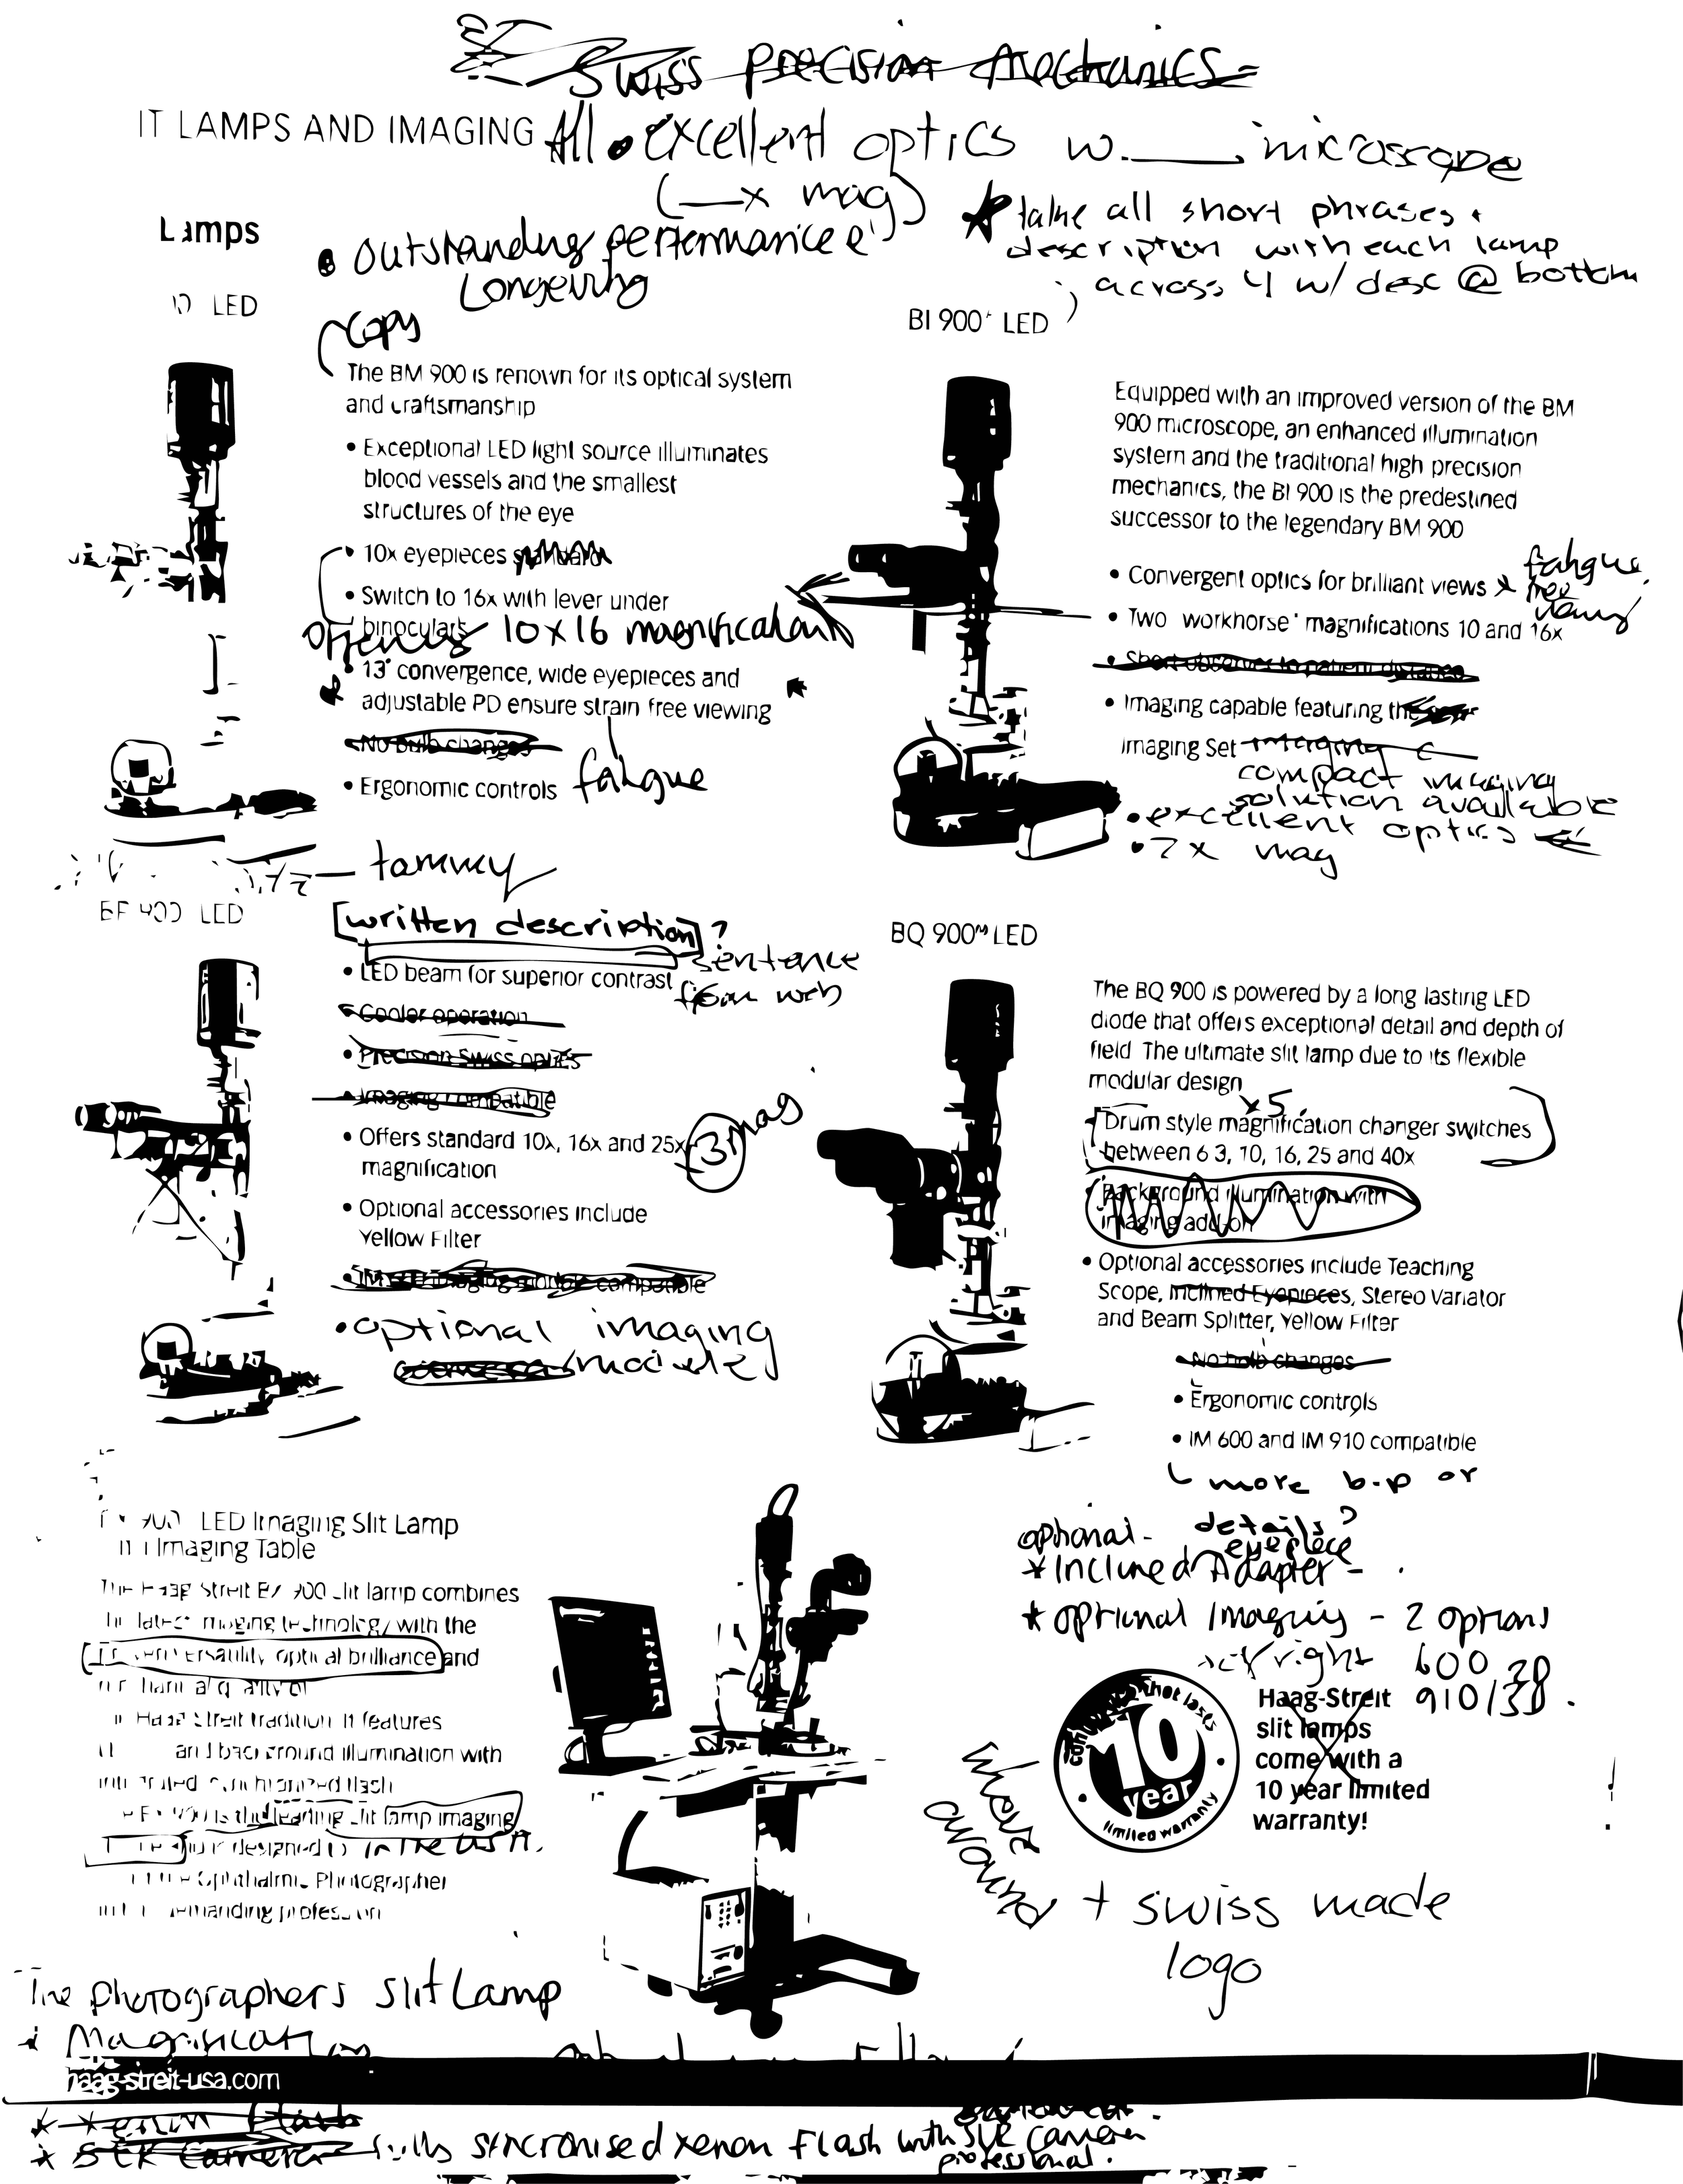 Swiss precision mechanics
IT LAMPS AND IMAGING
All • excellent optics w. ____ microscope
(__x mag)
Lamps
• Outstanding performance
Longevity
* take all short phrases +
description with each lamp
across 4 w/ desc @ bottom
LED
copy
The BM 900 is renown for its optical system
and craftsmanship
• Exceptional LED light source illuminates
blood vessels and the smallest
structures of the eye
• 10x eyepieces standard
• Switch to 16x with lever under
binoculars
Offers 10x16 magnification
• 13° convergence, wide eyepieces and
adjustable PD ensure strain free viewing
• No bulb changes
• Ergonomic controls
fatigue
tammy
BI 900+ LED
Equipped with an improved version of the BM
900 microscope, an enhanced illumination
system and the traditional high precision
mechanics, the BI 900 is the predestined
successor to the legendary BM 900
• Convergent optics for brilliant views
fatigue
free
views
• Two workhorse magnifications 10 and 16x
• Short observer to patient distance
• Imaging capable featuring the
Imaging Set imaging
compact imaging
solution available
• excellent optics
• 2x mag
LED
[written description]?
sentence
from web
• LED beam for superior contrast
• Cooler operation
• Precision Swiss optics
• Imaging compatible
• Offers standard 10x, 16x and 25x
magnification
3 mag
• Optional accessories include
Yellow Filter
imaging module compatible
• optional imaging
camera/module
BQ 900 LED
The BQ 900 is powered by a long lasting LED
diode that offers exceptional detail and depth of
field The ultimate slit lamp due to its flexible
modular design
x5
Drum style magnification changer switches
between 6 3, 10, 16, 25 and 40x
• Background illumination with
imaging add-on
• Optional accessories include Teaching
Scope, Inclined Eyepieces, Stereo Variator
and Beam Splitter, Yellow Filter
• No bulb changes
• Ergonomic controls
• IM 600 and IM 910 compatible
more b.p or
details?
optional -
eyepiece
* Inclined Adapter -
* optional Imaging - 2 options
right 600 2D
910/3D.
900 LED Imaging Slit Lamp
Imaging Table
The Haag Streit BX 900 slit lamp combines
the latest imaging technology with the
versatility optical brilliance and
Haag Streit tradition It features
and background illumination with
synchronized flash
is the leading slit lamp imaging
designed
in the USA.
Ophthalmic Photographer
demanding profession
confidence that lasts
10
year
limited warranty
Haag-Streit
slit lamps
come with a
10 year limited
warranty!
wheat
around
+ swiss made
logo
The photographers slit Lamp
Magnification
haag-streit-usa.com
* Xenon Flash
* SLR Camera fully sincronised xenon flash with SLR Camera
professional.